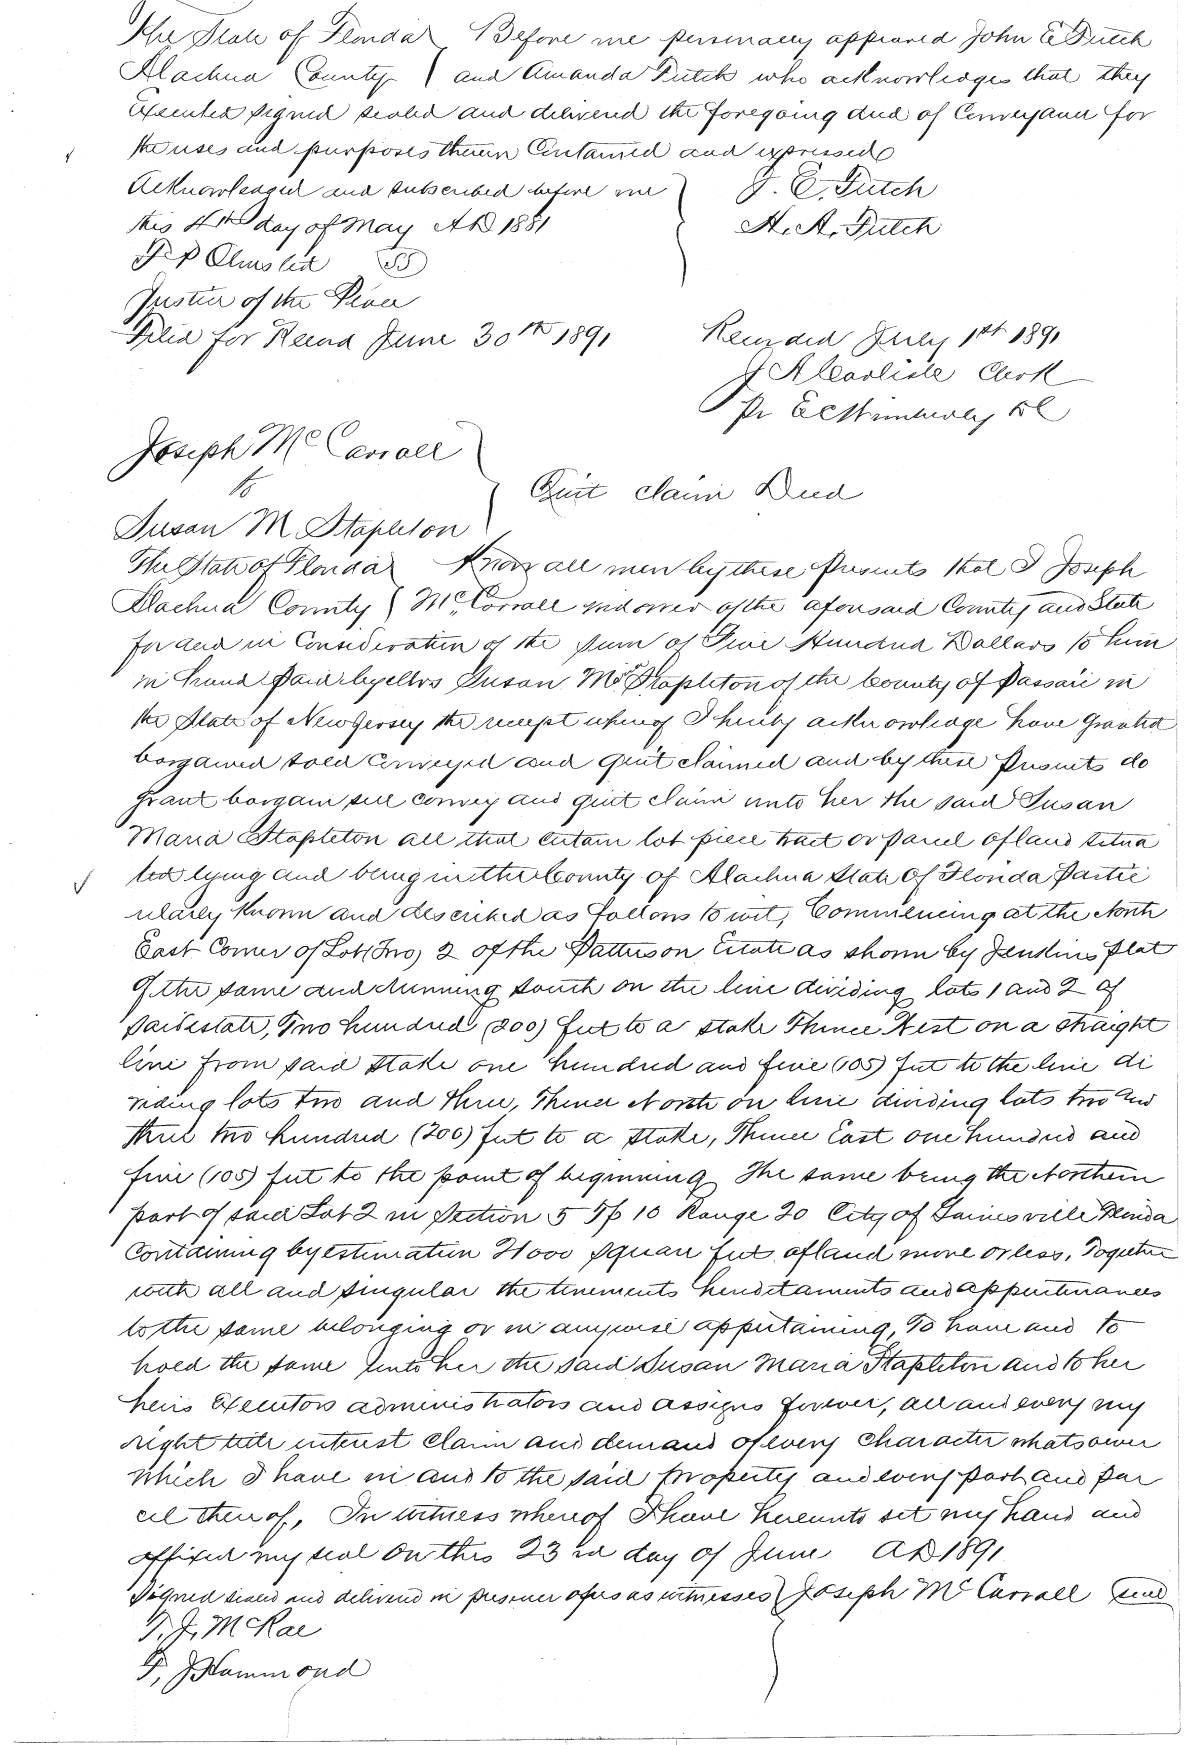 The State of Florida } Before me personally appeared John E Futch
Alachua County } and Amanda Futch who acknowledges that they
Executed signed sealed and delivered the foregoing deed of Conveyance for
the uses and purposes therein Contained and expressed
Acknowledged and subscribed before me } J. E. Futch
this 4th day of May AD 1881 A. A. Futch
F P Olmsted SS
Justice of the Peace
Filed for Record June 30th 1891 Recorded July 1st 1891
J A Carlisle Clerk
Pr E C Wimberly DC
Joseph McCarroll
to } Quit claim Deed
Susan M Stapleton
The State of Florida } Know all men by these Presents that I Joseph
Alachua County } McCarroll widower of the aforesaid County and State
for and in Consideration of the sum of Five Hundred Dollars to him
in hand Paid by Mrs Susan M Stapleton of the County of Passaic in
the State of New Jersey the receipt whereof I hereby acknowledge have Granted
bargained sold conveyed and quit claimed and by these Presents do
grant bargain sell convey and quit claim unto her the said Susan
Maria Stapleton all that certain lot piece tract or parcel of land situa
ted lying and being in the County of Alachua State of Florida Partic
ularly known and described as follows to wit, Commencing at the North
East Corner of Lot (Two) 2 of the Patterson Estate as shown by Jenkins plat
of the same and running south on the line dividing lots 1 and 2 of
said estate, Two hundred (200) feet to a stake Thence West on a straight
line from said stake one hundred and five (105) feet to the line di
viding lots two and three, Thence North on line dividing lots two and
three two hundred (200) feet to a stake, Thence East one hundred and
five (105) feet to the point of beginning The same being the Northern
part of said Lot 2 in Section 5 Tp 10 Range 20 City of Gainesville Florida
Containing by estimation 21000 square feet of land more or less, Together
with all and singular the tenements hereditaments and appurtenances
to the same belonging or in anywise appertaining, To have and to
hold the same unto her the said Susan Maria Stapleton and to her
heirs Executors administrators and assigns forever, all and every my
right title interest claim and demand of every character whatsoever
which I have in and to the said property and every part and par
cel thereof, In witness whereof I have hereunto set my hand and
affixed my seal on this 23rd day of June AD 1891
Signed sealed and delivered in presence of us as witnesses } Joseph McCarroll seal
T. J. McRae
F, J Hammond